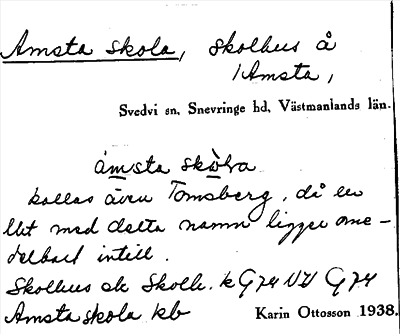 Amsta skola, skolhus å
/Amsta,
Svedvi sn, Snevringe hd, Västmanlands län.
ámsta skòla
kallas även Tomsberg, då en
lht med detta namn ligger ome-
delbart intill.
Skolhus ek Skolh. k G74 NV G74
Amsta skola kb
Karin Ottosson 1938.